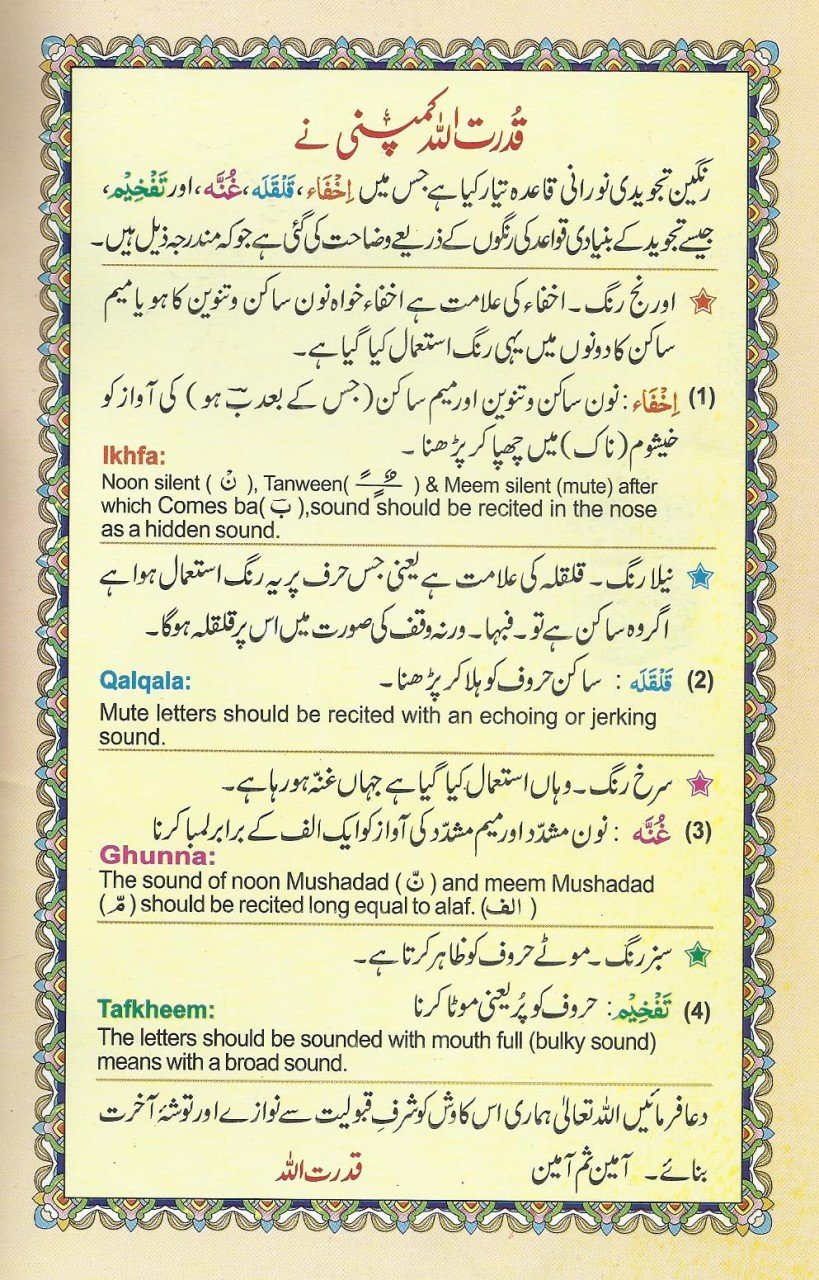 قُدرت اللہ کمپنی نے
رنگین تجویدی نورانی قاعدہ تیار کیا ہے جس میں اِخْفَاء، قَلْقَلَہ، غُنَّہ، اور تَفْخِیْم،
جیسے تجوید کے بنیادی قواعد کی رنگوں کے ذریعے وضاحت کی گئی ہے جو کہ مندرجہ ذیل ہیں۔
اورنج رنگ۔ اخفاء کی علامت ہے اخفاء خواہ نون ساکن و تنوین کا ہو یا میم
ساکن کا دونوں میں یہی رنگ استعمال کیا گیا ہے۔
(1) اِخْفَاء: نون ساکن و تنوین اور میم ساکن (جس کے بعد بٓ ہو) کی آواز کو
خیشوم (ناک) میں چھپا کر پڑھنا۔
Ikhfa:
Noon silent ( نْ ), Tanween( ـًـٍـٌ ) & Meem silent (mute) after
which Comes ba( بٓ ),sound should be recited in the nose
as a hidden sound.
نیلا رنگ۔ قلقلہ کی علامت ہے یعنی جس حرف پر یہ رنگ استعمال ہوا ہے
اگر وہ ساکن ہے تو۔ فبہا۔ ورنہ وقف کی صورت میں اس پر قلقلہ ہوگا۔
(2) قَلْقَلَہ: ساکن حروف کو ہلا کر پڑھنا۔
Qalqala:
Mute letters should be recited with an echoing or jerking
sound.
سرخ رنگ۔ وہاں استعمال کیا گیا ہے جہاں غنّہ ہو رہا ہے۔
(3) غُنَّہ: نون مشدّد اور میم مشدّد کی آواز کو ایک الف کے برابر لمبا کرنا
Ghunna:
The sound of noon Mushadad ( نّ ) and meem Mushadad
( مّ ) should be recited long equal to alaf. (الف )
سبز رنگ۔ موٹے حروف کو ظاہر کرتا ہے۔
(4) تَفْخِیْم: حروف کو پُر یعنی موٹا کرنا
Tafkheem:
The letters should be sounded with mouth full (bulky sound)
means with a broad sound.
دعا فرمائیں اللہ تعالیٰ ہماری اس کاوش کو شرفِ قبولیت سے نوازے اور توشۂ آخرت
بنائے۔ آمین ثم آمین قدرت اللہ